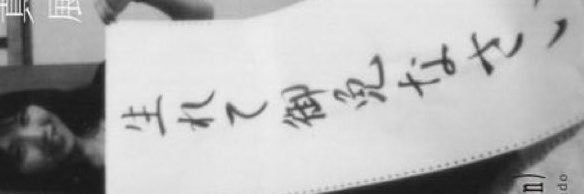 生れて御免なさい